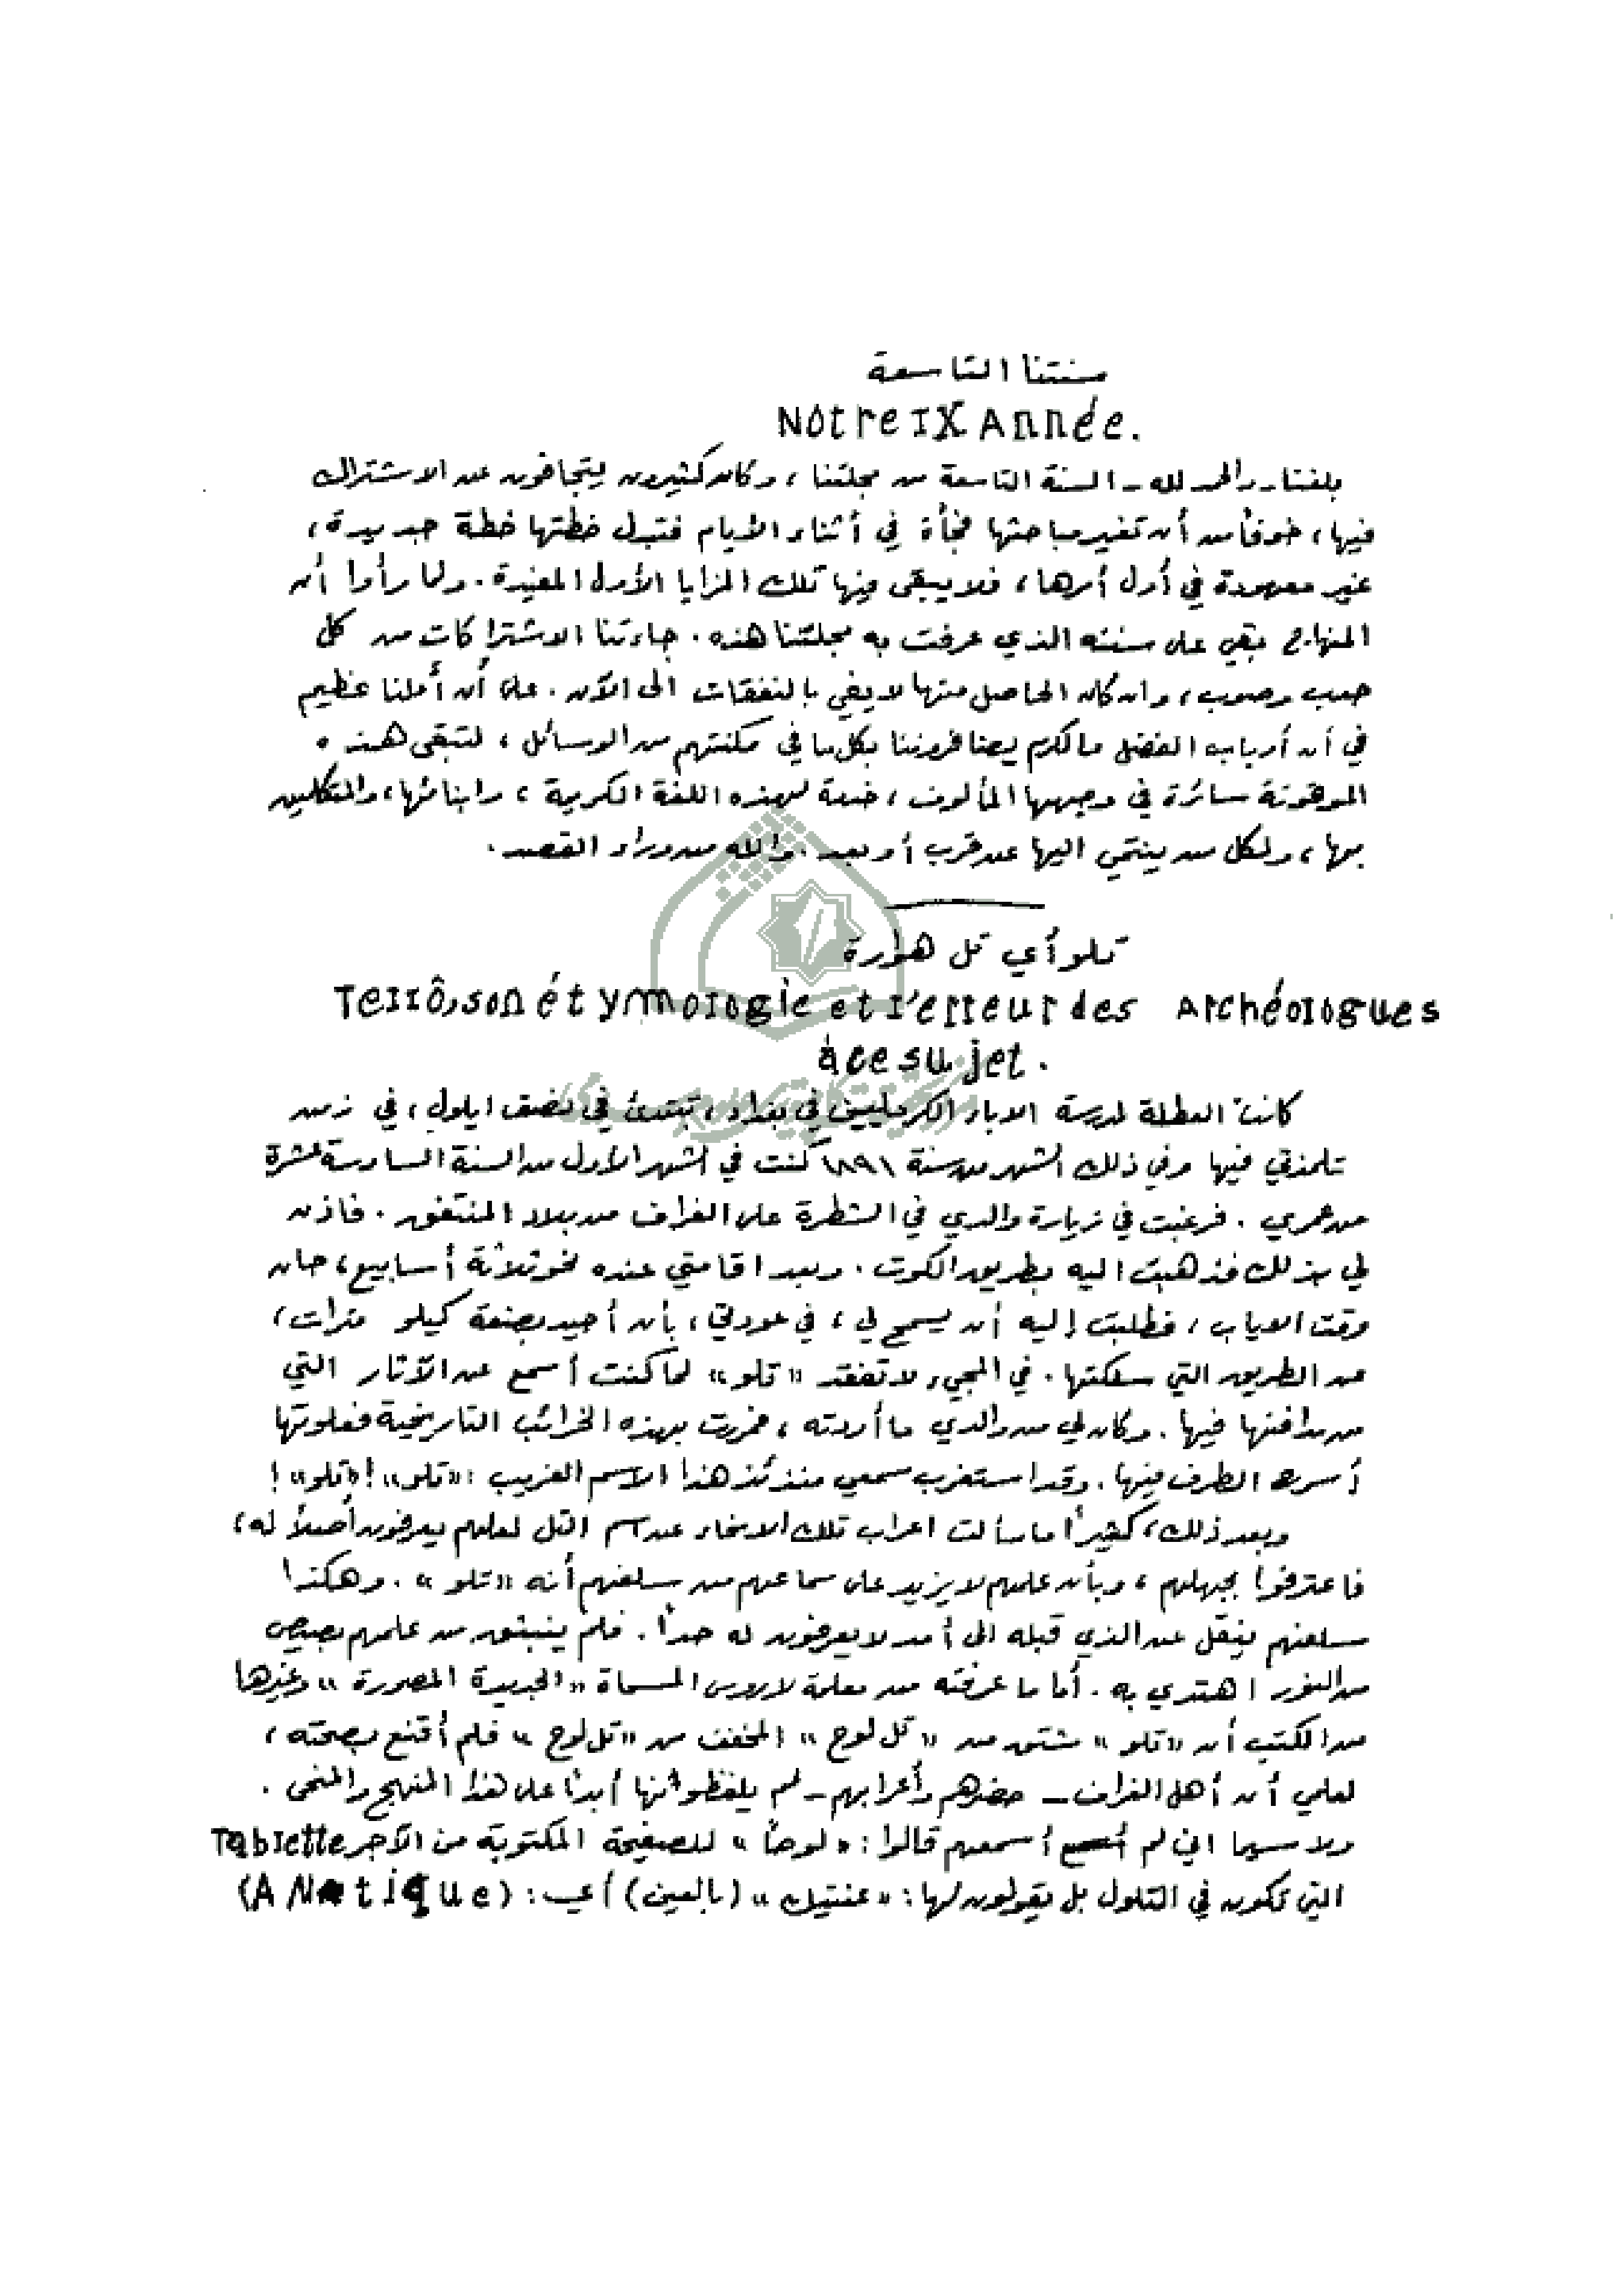 سنتنا التاسعة
Nôtre IX Année.
بلغنا - والحمد لله - السنة التاسعة من مجلتنا ، وكان كثيرون يتجافون عن الاشتراك
فيها ، خوفاً من أن تغير مباحثها فجأة في أثناء الأيام فتبدل خطتها خطة جديدة ،
غير معهودة في أول أمرها ، فلا يبقى فيها تلك المزايا الأول المفيدة . ولما رأوا أن
المنهاج بقي على سننه الذي عرفت به مجلتنا هذه . جاءتنا الاشتراكات من كل
حدب وصوب ، وان كان الحاصل منها لا يفي بالنفقات الى الآن . على أن أملنا عظيم
في أن أرباب الفضل والكرم يصافروننا بكل ما في مكنتهم من الوسائل ، لتبقى هذه
الموقوتة سائرة في وجهها المألوف ، خدمة لهذه اللغة الكريمة ، وابنائها ، والمتكلمين
بها ، ولكل من ينتمي اليها عن قرب أو بعد . والله من وراء القصد .
تلو أي تل هوارة
Tellô, son étymologie et l'erreur des Archéologues
à ce sujet.
كانت العطلة لمدرسة الاباء الكرمليين في بغداد ، تبتدئ في نصف ايلول ، في زمن
تلمذتي فيها وفي ذلك الشهر من سنة ١٨٩١ كنت في الشهر الأول من السنة السادسة عشرة
من عمري . فرغبت في زيارة والدي في الشطرة على الغراف من بلاد المنتفق . فاذن
لي بذلك فذهبت اليه بطريق الكوت . وبعد اقامتي عنده نحو ثلاثة أسابيع ، حان
وقت الاياب ، فطلبت إليه أن يسمح لي ، في عودتي ، بأن أحيد بضعة كيلو مترات ،
عن الطريق التي سلكتها . في المجيء لاتفقد « تلو » لما كنت أسمع عن الآثار التي
من مدافنها فيها . وكان لي من والدي ما أردته ، فمررت بهذه الخرائب التاريخية فعلوتها
أسرح الطرف فيها . وقد استغرب سمعي منذئذ هذا الاسم الغريب : « تلو » ! « تلو » !
وبعد ذلك ، كثيراً ما سألت اعراب تلك الانحاء عن اسم التل لعلهم يعرفون أصلاً له ،
فاعترفوا بجهلهم ، وبأن علمهم لا يزيد على سماعهم من سلفهم أنه « تلو » . وهكذا
سلفهم ينقل عن الذي قبله الى أمد لا يعرفون له حداً . فلم ينبثق من علمهم بصيص
من النور اهتدي به . أما ما عرفته من معلمة لاروس المسماة « الجديدة المصورة » وغيرها
من الكتب أن « تلو » مشتق من « تل لوح » المخفف من « تل لوح » فلم أقنع بصحته ،
لعلمي أن أهل الغراف - حضرهم وأعرابهم - لم يلفظوا نها أبداً على هذا المنهج والمنحى .
ولا سيما اني لم أسمعهم قالوا : « لوحاً » للصفيحة المكتوبة من الآجر Tablette
التي تكون في التلول بل يقولون لها : « عنتيك » ( بالعين ) أي : (ANtique)